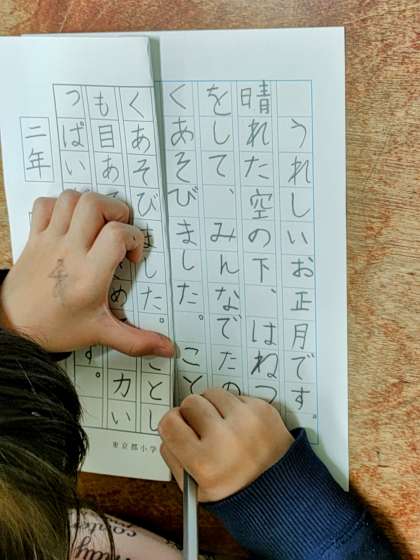 うれしいお正月です。
晴れた空の下、はねつ
をして、みんなでたの
くあそびました。こと
くあそびました。ことし
も目あ
め
力い
っぱい
す。
二年
東京都小学